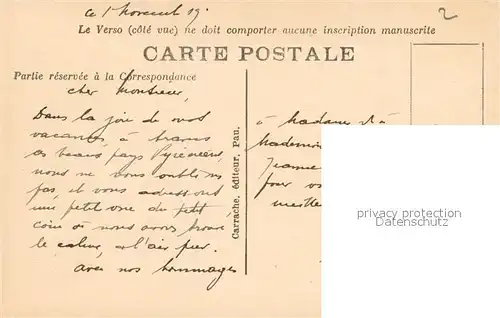 ce 1r
2
Le Verso (côté vue) ne doit comporter aucune inscription manuscrite
CARTE POSTALE
Partie réservée à la Correspondance
cher Monsieur,
Dans la joie de vos
vacances à travers
ces beaux pays Pyrénéens,
nous ne vous oublions
pas, et vous adressons
une petite vue du petit
coin où nous avons trouvé
le calme, et l'air pur.
avec nos hommages
Carrache, éditeur, Pau.
à Madame et à
Mademoi
Jeanne
pour vo
meille
privacy protection
Datenschutz